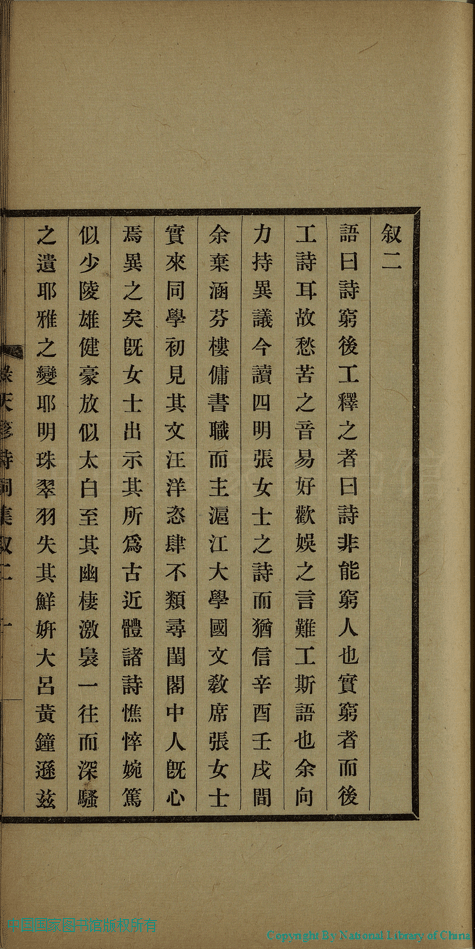 叙二
語曰詩窮後工釋之者曰詩非能窮人也實窮者而後
工詩耳故愁苦之音易好歡娛之言難工斯語也余向
力持異議今讀四明張女士之詩而猶信辛酉壬戌間
余棄涵芬樓傭書職而主滬江大學國文教席張女士
實來同學初見其文汪洋恣肆不類尋閨閣中人旣心
焉異之矣旣女士出示其所爲古近體諸詩憔悴婉篤
似少陵雄健豪放似太白至其幽棲激裊一往而深騷
之遺耶雅之變耶明珠翠羽失其鮮姸大呂黃鐘遜茲
天 詩詞集叙二 一
中国国家图书馆版权所有
Copyright By National Library of China